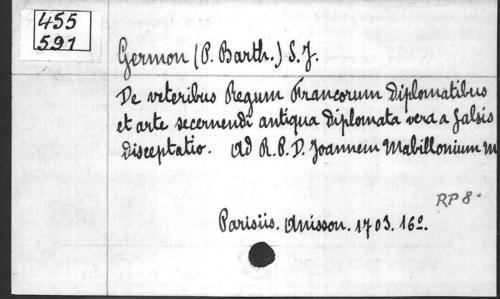 455
591
Germon (P. Barth.) S. J.
De veteribus Regum Francorum Diplomatibus
et arte secernendi antiqua Diplomata vera a falsis
Disceptatio. Ad R. P. D. Joannem Mabillonium M
RP 8
Parisiis. Anisson. 1703. 16º.